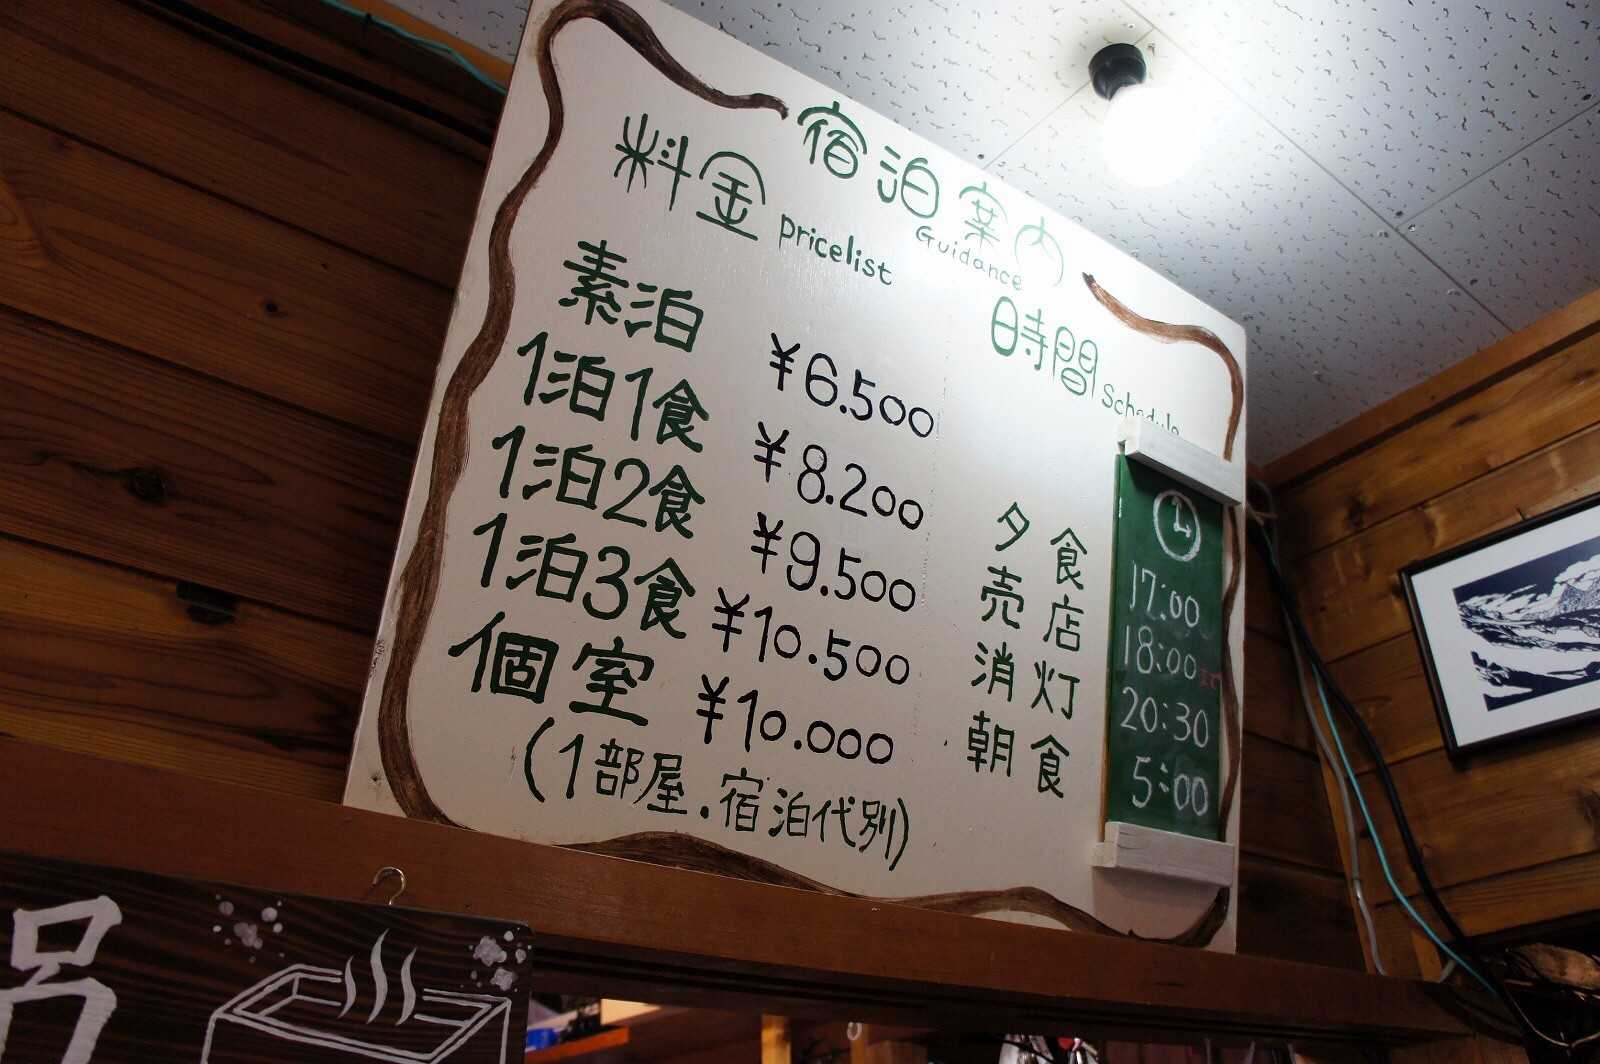 宿泊案内
Guidance
料金 pricelist
素泊 ¥6.500
1泊1食 ¥8.200
1泊2食 ¥9.500
1泊3食 ¥10.500
個室 ¥10.000
(1部屋.宿泊代別)
時間 Schedule
夕食 17:00
売店 18:00まで
消灯 20:30
朝食 5:00
呂